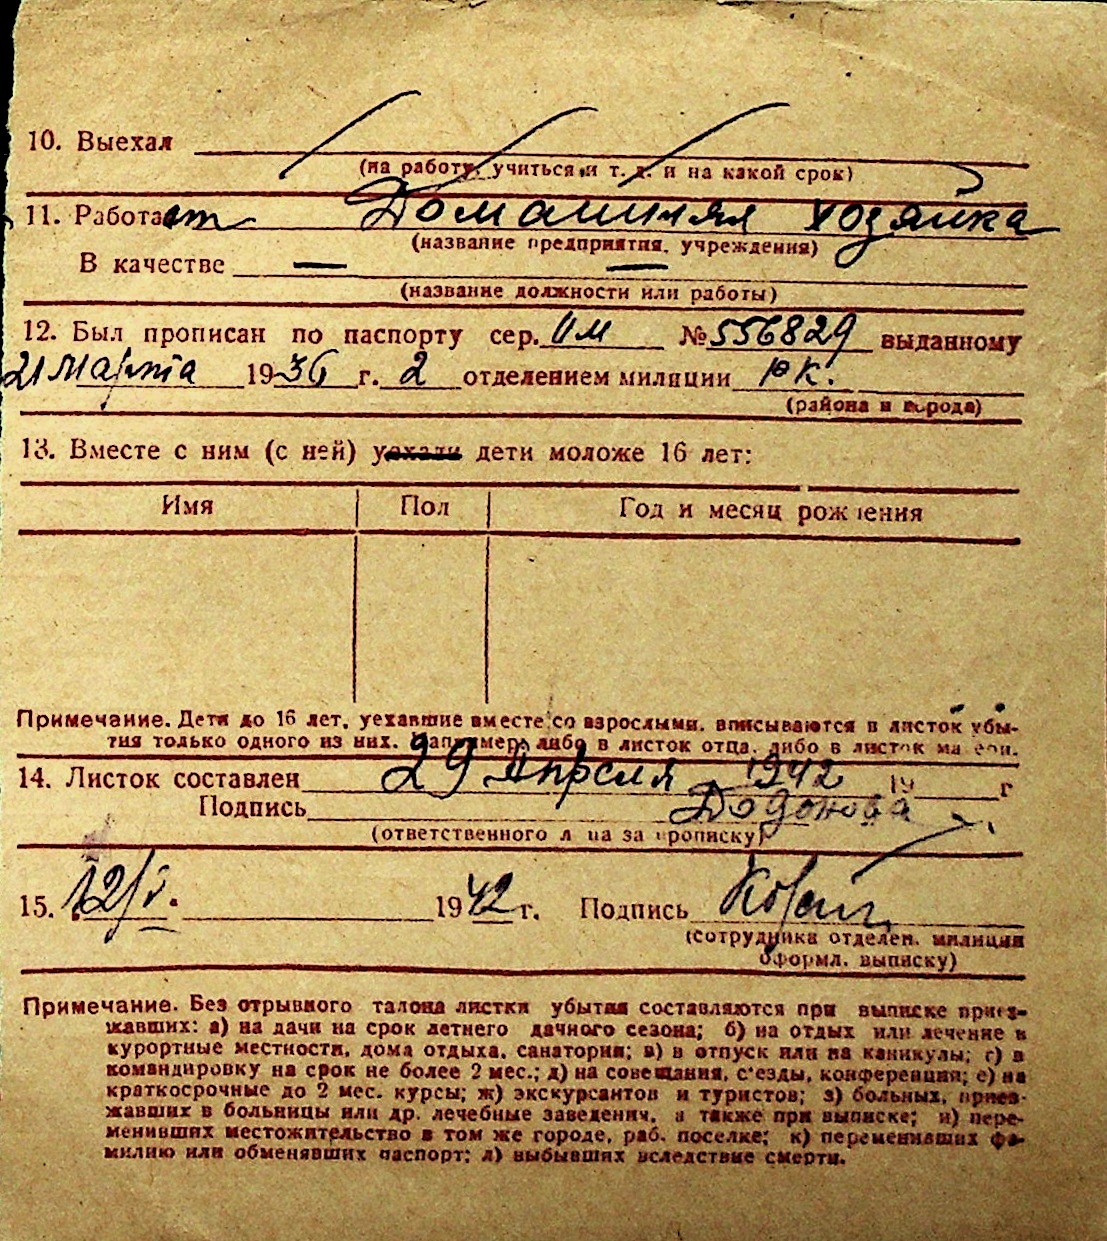 10. Выехал
(на работу, учиться и т. д. и на какой срок)
11. Работает Домашняя хозяйка
(название предприятия, учреждения)
В качестве — —
(название должности или работы)
12. Был прописан по паспорту сер. № 556829 выданному
21 марта 1936 г. 2 отделением милиции РК.
(района и города)
13. Вместе с ним (с ней) уехали дети моложе 16 лет:
Имя Пол Год и месяц рождения
Примечание. Дети до 16 лет, уехавшие вместе со взрослыми, вписываются в листок убы-
тия только одного из них. Например, либо в листок отца, либо в листок матери.
14. Листок составлен 29 Апреля 1942 19 г
Подпись Додонова
(ответственного лица за прописку)
15. 12/V. 1942 г. Подпись
(сотрудника отделен. милиции
оформл. выписку)
Примечание. Без отрывного талона листки убытия составляются при выписке приез-
жавших: а) на дачи на срок летнего дачного сезона; б) на отдых или лечение в
курортные местности, дома отдыха, санатории; в) в отпуск или на каникулы; г) в
командировку на срок не более 2 мес.; д) на совещания, с'езды, конференции; е) на
краткосрочные до 2 мес. курсы; ж) экскурсантов и туристов; з) больных, приез-
жавших в больницы или др. лечебные заведения, а также при выписке; и) пере-
менивших местожительство в том же городе, раб. поселке; к) переменивших фа-
милию или обменявших паспорт; л) выбывших вследствие смерти.